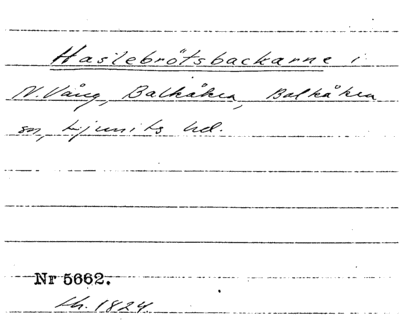 Haslebrötsbackarne i
N. Vång, Balkåkra, Balkåkra
sn, Ljunits hd.
Nr 5662.
Lh. 1824.